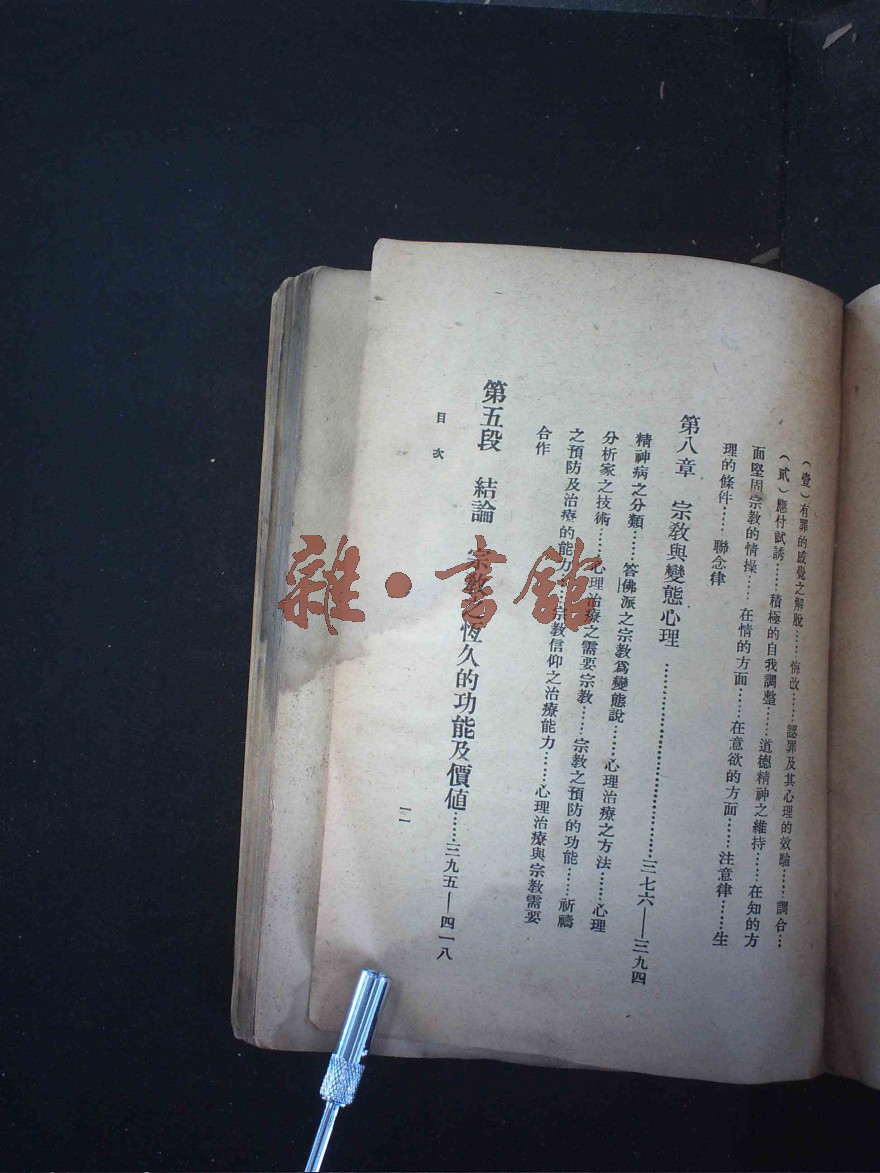 （壹）有罪的感覺之解脫……悔改……認罪及其心理的效驗……調合…
（貳）應付試誘……積極的自我調整……道德精神之維持……在知的方
面堅固宗教的情操……在情的方面……在意欲的方面……注意律……生
理的條件……聯念律
第八章　宗教與變態心理……三七六——三九四
精神病之分類……答佛派之宗教爲變態說……心理治療之方法……心理
分析家之技術……心理治療之需要宗教……宗教之預防的功能……祈禱
之預防及治療的能力……宗教信仰之治療能力……心理治療與宗教需要
合作
第五段　結論　宗教之恆久的功能及價値……三九五——四一八
目次
一一
雜·書館